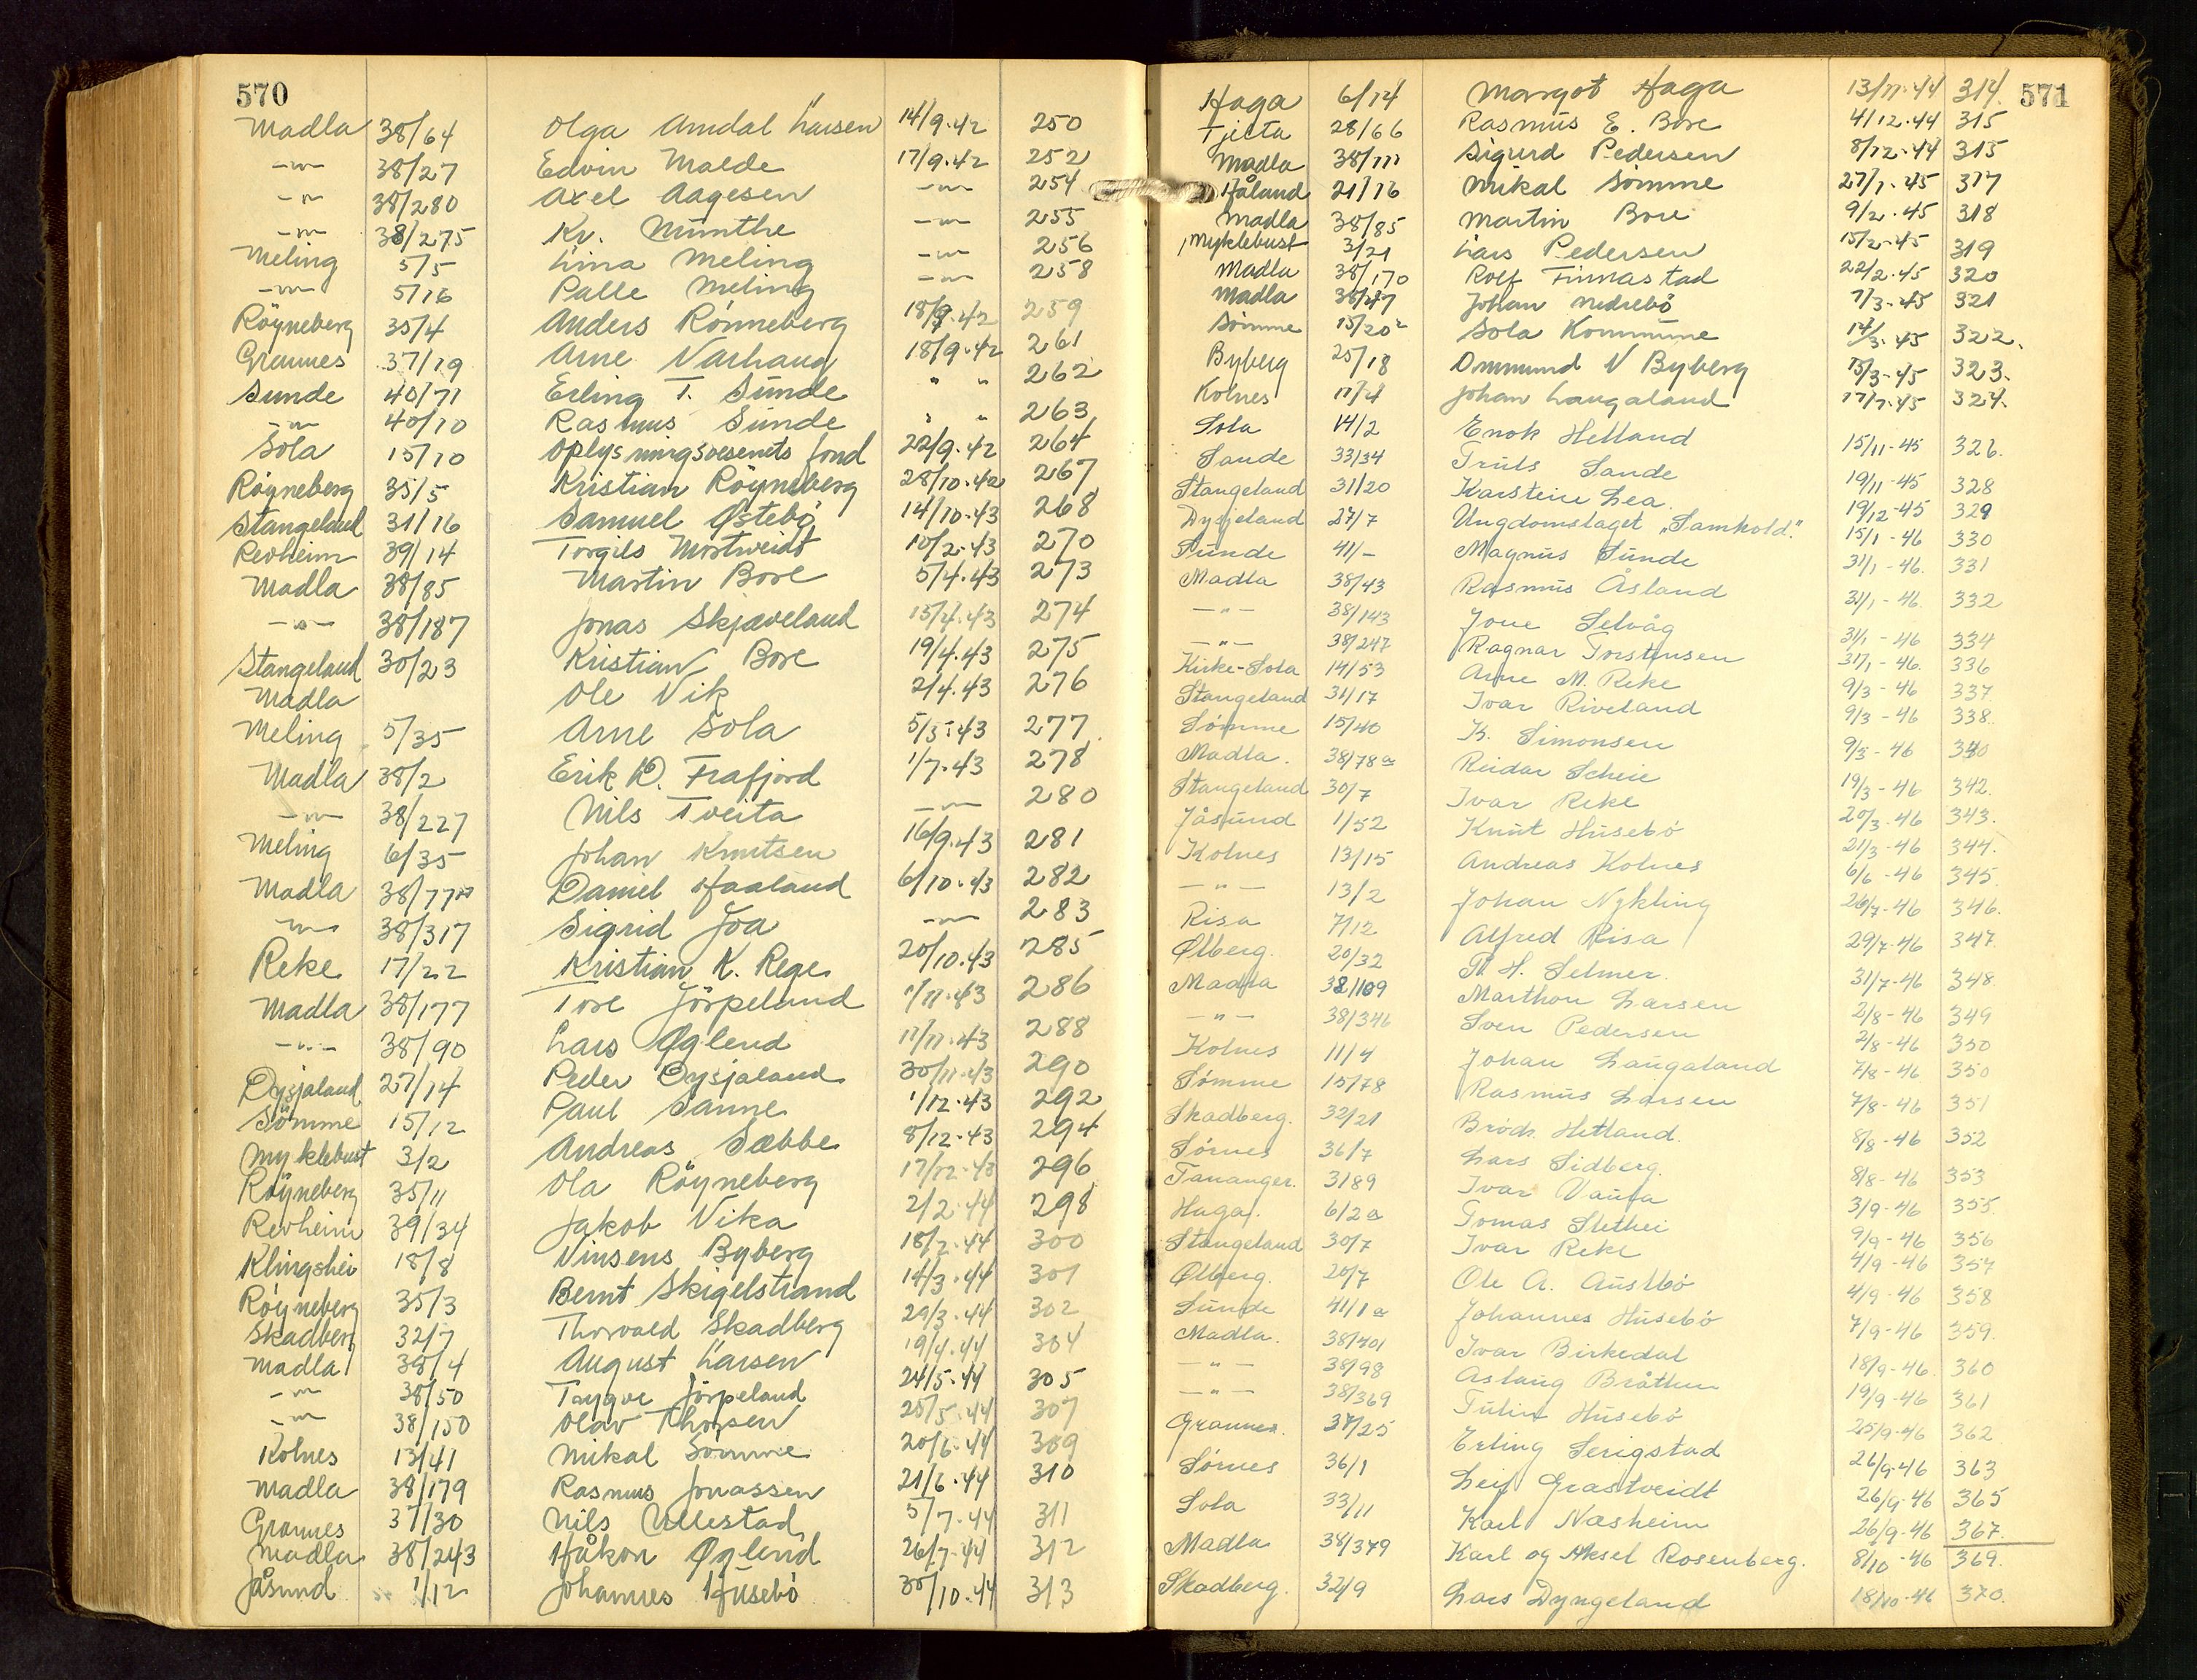 570
Madla 38/64 Olga Amdal Larsen 14/9.42 250
-"- 38/27 Edvin Malde 17/9.42 252
-"- 38/280 Axel Aagesen -"- 254
-"- 38/275 Kr. Munthe -"- 255
Meling 5/5 Lina Meling -"- 256
-"- 5/16 Palle Meling -"- 258
Röyneberg 35/4 Anders Rönneberg 18/9.42 259
Grannes 37/19 Arne Varhaug 18/9.42 261
Sunde 40/71 Erling T. Sunde " " 262
-"- 40/10 Rasmus Sunde " " 263
Sola 15/10 Oplysningsvesenets fond 22/9.42 264
Röyneberg 35/5 Kristian Röyneberg 28/10.42 267
Stangeland 31/16 Samuel Østebö 14/10.43 268
Revheim 39/14 Torgils Mortveidt 10/2.43 270
Madla 38/85 Martin Bore 5/4.43 273
-"- 38/187 Jonas Skjæveland 15/4.43 274
Stangeland 30/23 Kristian Bore 19/4.43 275
Madla Ole Vik 2/4.43 276
Meling 5/35 Arne Sola 5/5.43 277
Madla 38/2 Erik D. Frafjord 1/7.43 278
-"- 38/227 Nils Tveita -"- 280
Meling 6/35 Johan Knutsen 16/9.43 281
Madla 38/77 Daniel Haaland 6/10.43 282
-"- 38/317 Sigrid Joa -"- 283
Reke 17/22 Kristian K. Rege 20/10.43 285
Madla 38/177 Tore Jörpeland 1/11.43 286
-"- 38/90 Lars Øglend 11/11.43 288
Dysjaland 27/14 Peder Dysjaland 30/11.43 290
Sömme 15/12 Paul Sanne 1/12.43 292
Myklebust 3/2 Andreas Sæbbe 8/12.43 294
Röyneberg 35/11 Ola Röyneberg 17/12.43 296
Revheim 39/34 Jakob Vika 2/2.44 298
Klingshei 18/8 Vinsens Byberg 18/2.44 300
Röyneberg 35/3 Bernt Skigelstrand 14/3.44 301
Skadberg 32/7 Thorvald Skadberg 29/3.44 302
Madla 38/4 August Larsen 19/4.44 304
-"- 38/50 Trygve Jörpeland 24/5.44 305
-"- 38/150 Olav Thorsen 25/5.44 307
Kolnes 13/41 Mikal Sömme 20/6.44 309
Madla 38/179 Rasmus Jonassen 21/6.44 310
Grannes 37/30 Nils Ullestad 5/7.44 311
Madla 38/243 Håkon Øglend 26/7.44 312
Jåsund 1/12 Johannes Husebö 30/10.44 313
571
Haga 6/14 Margot Haga 13/11.44 314
Tjelta 28/66 Rasmus E. Bore 4/12.44 315
Madla 38/111 Sigurd Pedersen 8/12.44 315
Håland 21/16 Mikal Sömme 27/1.45 317
Madla 38/85 Martin Bore 9/2.45 318
Myklebust 3/21 Lars Pedersen 15/2.45 319
Madla 38/170 Rolf Finnastad 22/2.45 320
Madla 38/47 Johan Nedrebö 7/3.45 321
Sömme 15/20 Sola Kommune 14/3.45 322.
Byberg 25/18 Ommund V Byberg 15/3.45 323.
Kolnes 11/4 Johan Laugaland 17/7.45 324.
Sola 14/2 Enok Helland 15/11-45 326.
Sande 33/34 Truls Sande 19/11-45 328
Stangeland 31/20 Karsten Lea 19/12-45 329
Dysjeland 27/7 Ungdomslaget "Samhold". 15/1-46 330
Sunde 41/- Magnus Sunde 31/1-46. 331
Madla 38/43 Rasmus Åsland 31/1-46. 332
-"- 38/143 Jone Selvåg 31/1-46 334
-"- 38/247 Ragnar Torstensen 31/1-46. 336
Kirke-Sola 14/53 Arne M. Reke 9/3-46 337
Stangeland 31/17 Ivar Riveland 9/3-46 338.
Sömme 15/40 K. Simonsen 9/3-46 340
Madla. 38/78a Reidar Scheie 19/3-46 342.
Stangeland 30/7 Ivar Reke 20/3-46 343.
Jåsund 1/52 Knut Husebö 21/3-46 344.
Kolnes 13/15 Andreas Kolnes 6/6-46 345
-"- 13/2 Johan Nykling 26/7-46 346.
Risa 7/12 Alfred Risa 29/7-46 347
Ølberg. 20/32 Th. H. Selmer. 31/7-46 348.
Madla 38/109 Marthon Larsen 2/8-46 349
-"- 38/346 Sven Pedersen 2/8-46 350
Kolnes 11/4 Johan Laugaland 7/8-46 350
Sömme 15/78 Rasmus Larsen 7/8-46 351
Skadberg. 32/21 Brödr. Hetland. 8/8-46 352
Sörnes 36/7 Lars Lidberg. 8/8-46 353
Tananger. 3/89 Ivar Vaula 3/9-46 355.
Haga. 6/2a Tomas Slethei 9/9-46 356
Stangeland 30/7 Ivar Reke 4/9-46 357
Ølberg. 20/7 Ole A. Austbö 4/9-46 358
Sunde 41/1a Johannes Husebö 7/9-46 359.
Madla. 38/401 Ivar Birkedal 18/9-46. 360
-"- 38/98 Aslaug Bråthen 19/9-46 361
-"- 38/369 Tulin Husebö 25/9-46 362
Grannes. 37/25 Erling Serigstad 26/9-46 363
Sörnes 36/1 Leif Grastveidt 26/9.46 365
Sola 33/11 Karl Næsheim 26/9-46 367.
Madla 38/379 Karl og Aksel Rosenberg. 8/10-46 369.
Skadberg. 32/9 Lars Dyngeland 18/10-46 370.